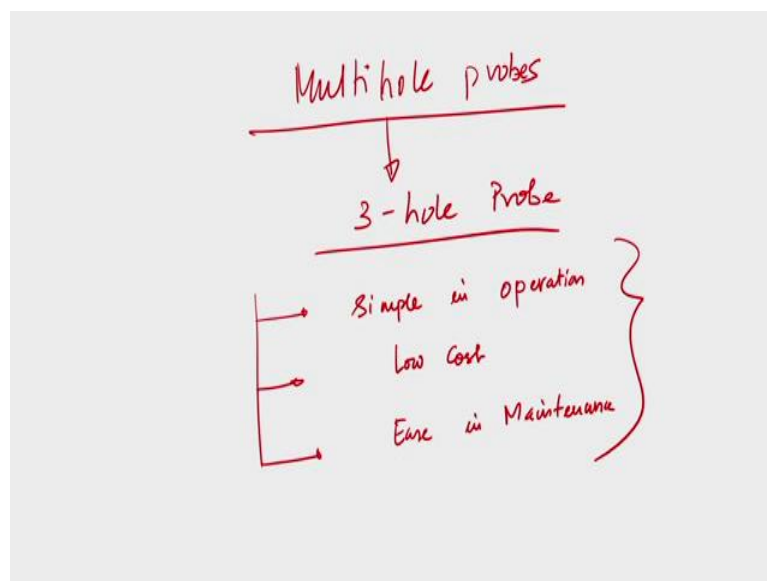 Multihole probes
3-hole Probe
Simple in operation
Low Cost
Ease in Maintenance